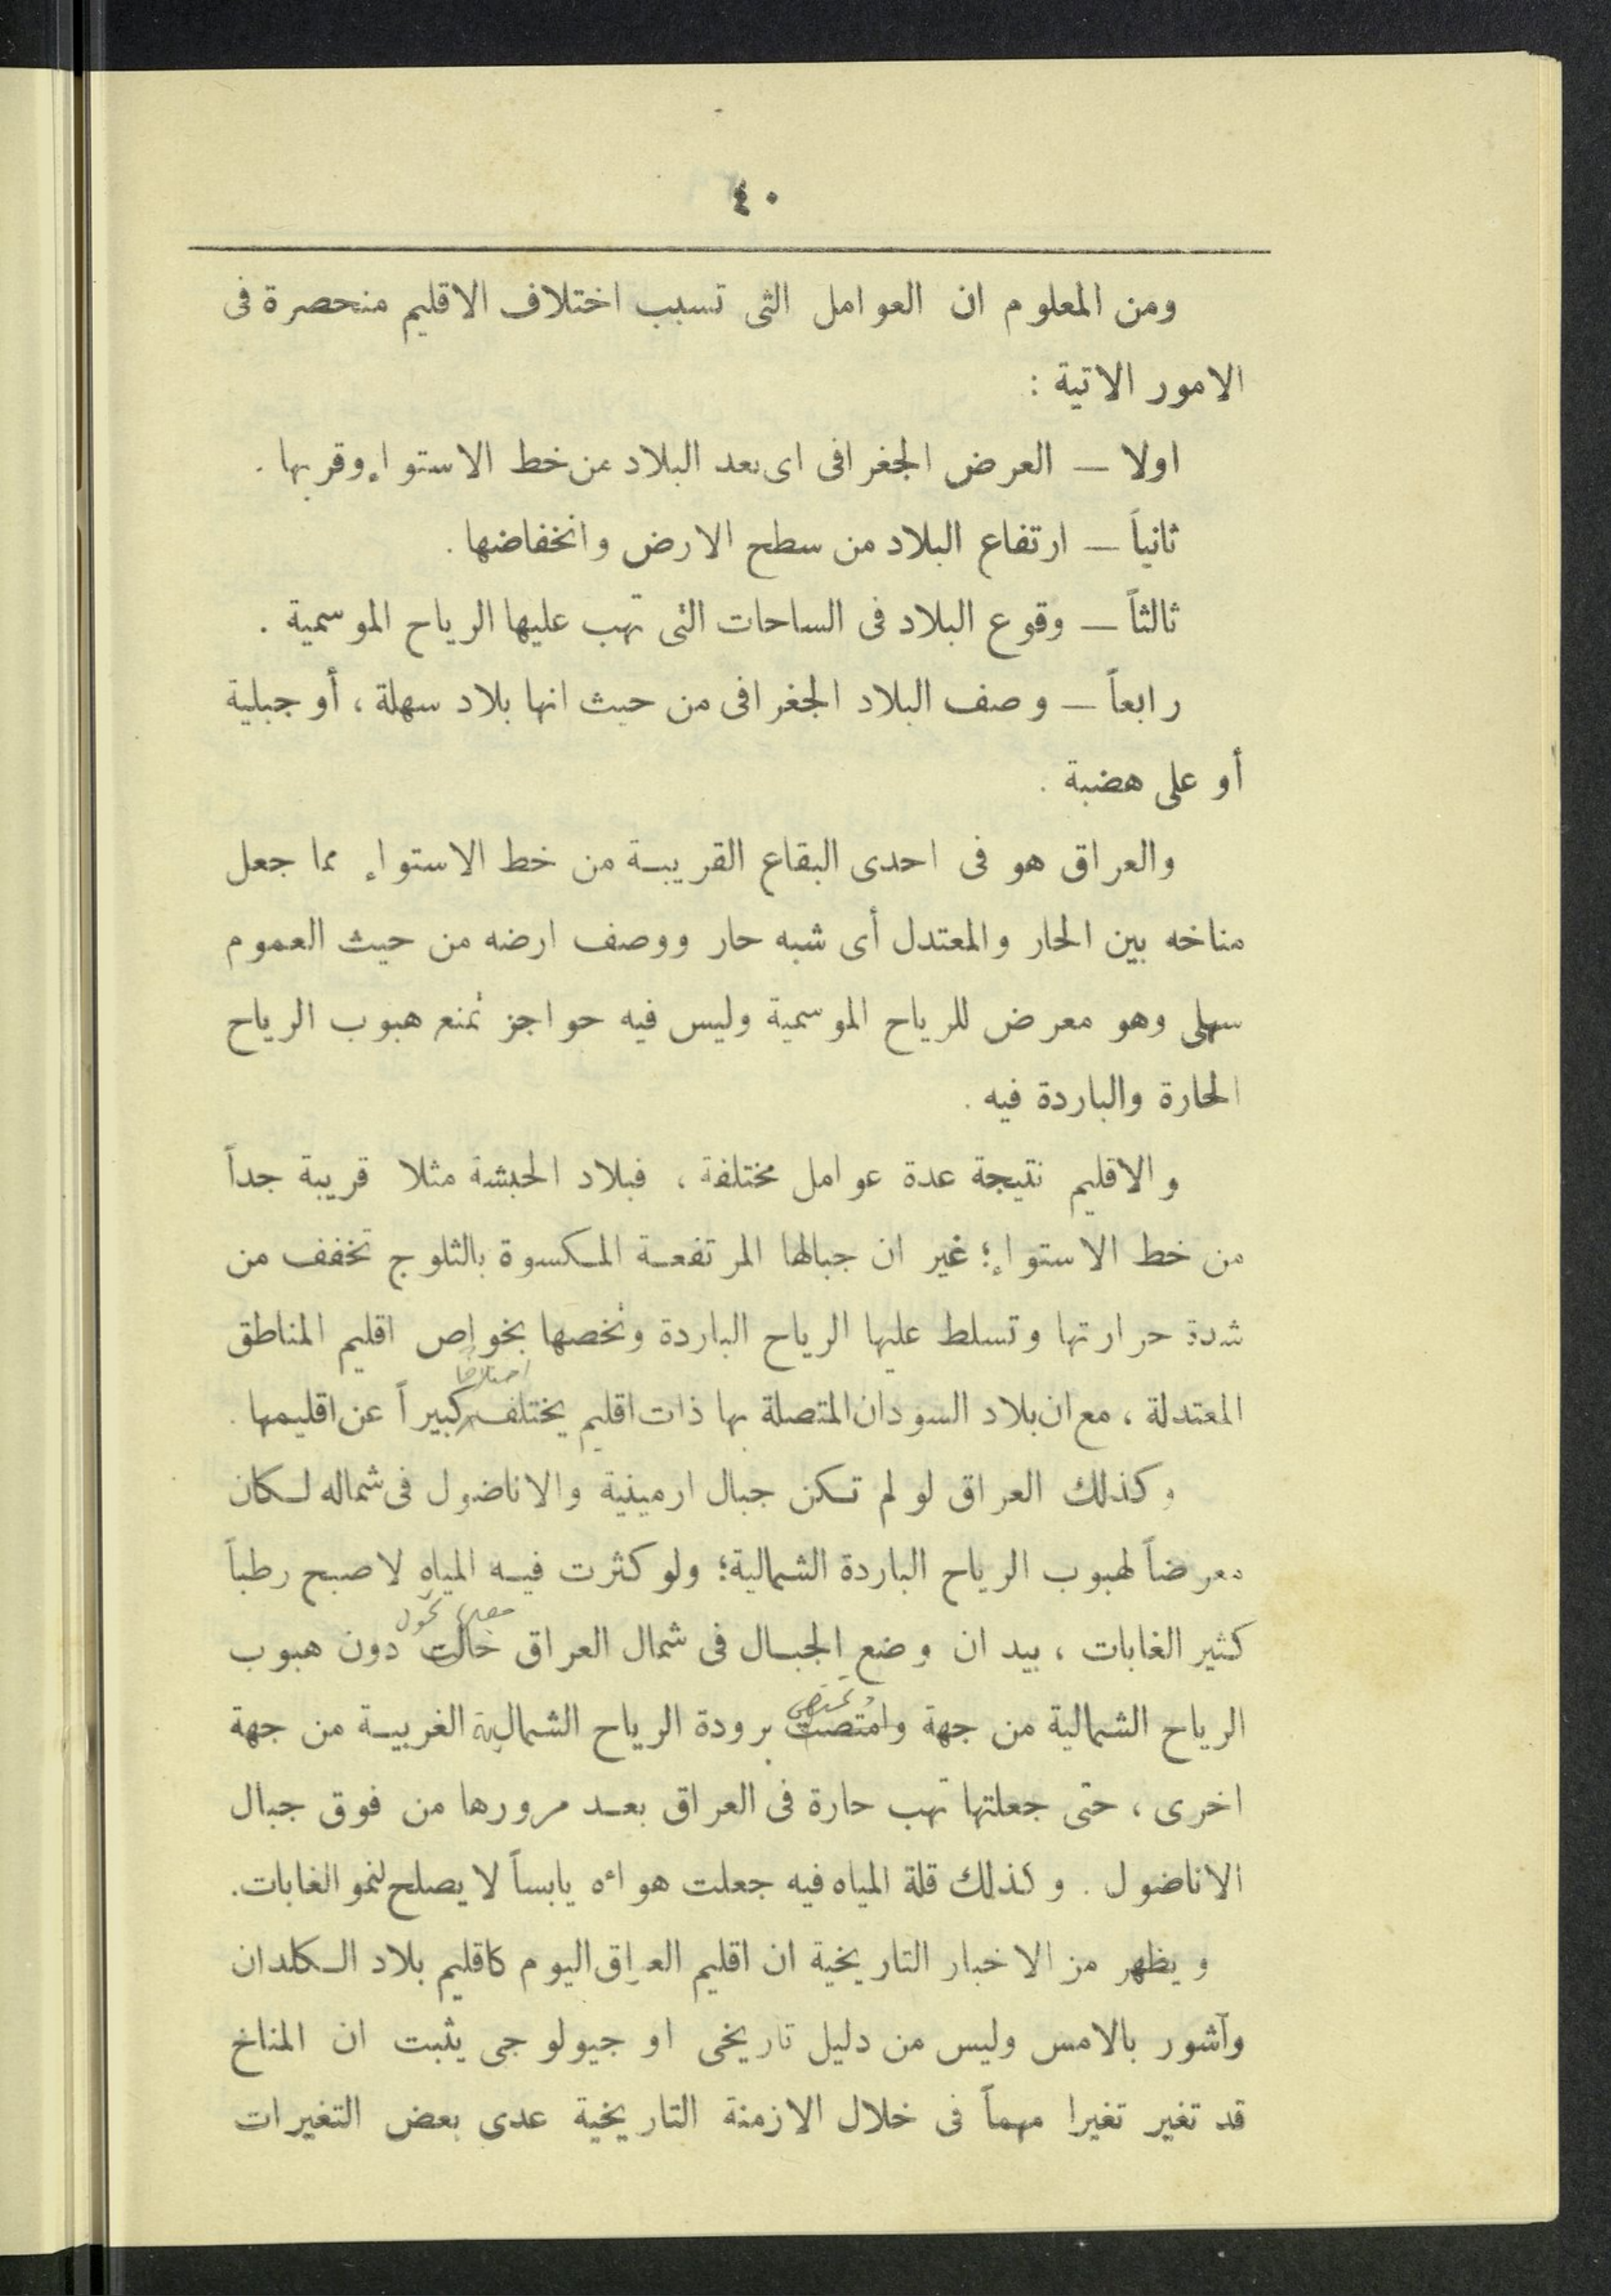 ٤٠
ومن المعلوم ان العوامل التى تسبب اختلاف الاقليم منحصرة فى
الامور الاتية :
اولا — العرض الجغرافى اى بعد البلاد عن خط الاستواء وقربها .
ثانياً — ارتفاع البلاد من سطح الارض وانخفاضها .
ثالثاً — وقوع البلاد فى الساحات التى تهب عليها الرياح الموسمية .
رابعاً — وصف البلاد الجغرافى من حيث انها بلاد سهلة ، أو جبلية
أو على هضبة .
والعراق هو فى احدى البقاع القريبة من خط الاستواء مما جعل
مناخه بين الحار والمعتدل أى شبه حار ووصف ارضه من حيث العموم
سهلى وهو معرض للرياح الموسمية وليس فيه حواجز تمنع هبوب الرياح
الحارة والباردة فيه .
والاقليم نتيجة عدة عوامل مختلفة ، فبلاد الحبشة مثلا قريبة جداً
من خط الاستواء ؛ غير ان جبالها المرتفعة المكسوة بالثلوج تخفف من
شدة حرارتها وتسلط عليها الرياح الباردة وتخصها بخواص اقليم المناطق
اختلافا
المعتدلة ، مع ان بلاد السودان المتصلة بها ذات اقليم يختلف كبيراً عن اقليمها .
وكذلك العراق لو لم تكن جبال ارمينية والاناضول فى شماله لكان
معرضاً لهبوب الرياح الباردة الشمالية ؛ ولو كثرت فيه المياه لاصبح رطباً
تحول
كثير الغابات ، بيد ان وضع الجبال فى شمال العراق حالت دون هبوب
وتمتص
الرياح الشمالية من جهة وامتصت برودة الرياح الشمالية الغربية من جهة
اخرى ، حتى جعلتها تهب حارة فى العراق بعد مرورها من فوق جبال
الاناضول . وكذلك قلة المياه فيه جعلت هوائه يابساً لا يصلح لنمو الغابات .
ويظهر من الاخبار التاريخية ان اقليم العراق اليوم كاقليم بلاد الكلدان
وآشور بالامس وليس من دليل تاريخى او جيولوجى يثبت ان المناخ
قد تغير تغيرا مهماً فى خلال الازمنة التاريخية عدى بعض التغيرات